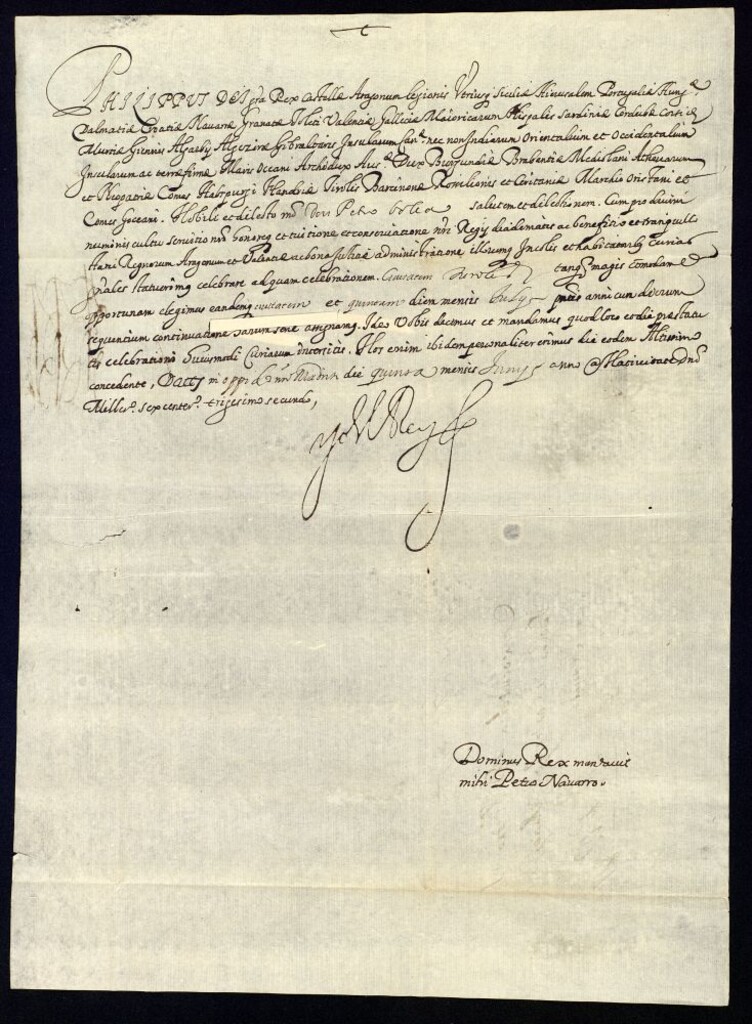 PHILIPPUS DEI gra Rex Castellæ Aragonum legionis Utriusq; Siciliæ Hierusalem Portugaliæ Hung.æ
Dalmatiæ Croatiæ Navarræ Granatæ Toleti Valentiæ Galleciæ Maioricarum Hispalis Sardiniæ Cordubæ Corsicæ
Murtiæ Giennis Algarbij Algeziræ Gibraltaris Insularum Can.æ nec non Indiarum Orientalium et Occidentalium
Insularum ac terræ firmæ Maris Oceani Archidux Aus.æ Dux Burgundiæ Brabantiæ Mediolani Athenarum
et Neopatriæ Comes Habspurgi Flandriæ Tirolis Barcinonæ Rossilionis et Ceritaniæ Marchio Oristani et
Comes Goceani. Nobili et dilecto nro Don Petro Bolea salutem et dilectionem. Cum pro divini
numinis cultu servitio nro honoreq; et tuitione et conservatione nri Regij diadematis ac beneficio et tranquilli
statu Regnorum Aragonum et Valentiæ ac bona Justitiæ administratione illorumq; Incolis et habitatoribus curias
g̃nales statuerimus celebrare ad quam celebrationem. Civitatem tanq; magis comodam et
opportunam elegimus eandemq; civitatem et quinum diem mensis July p̃ntis anni cum dierum
sequentium continuatione earum sane assignamus. Ideo Vobis dicimus et mandamus quod loco et die præstatu
tis celebrationi huiusmodi Curiarum intersitis. Nos enim ibidem personaliter erimus die eodem Altissimo
concedente, Datts in oppido nro Madrid die quinta mensis Juny anno a Nativitate Dni
Mille.º sexcente.º trigesimo secundo,
Yo el Rey
Dominus Rex mandavit
mihi Petro Navarro.